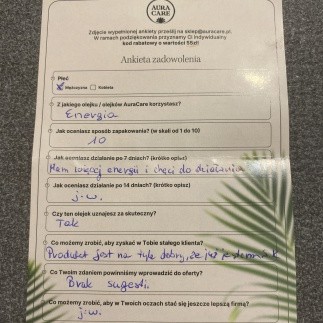 AURA
CARE
Zdjęcie wypełnionej ankiety prześlij na sklep@auracare.pl.
W ramach podziękowania przyznamy Ci indywidualny
kod rabatowy o wartości 50zł!
Ankieta zadowolenia
Płeć
Mężczyzna Kobieta
Z jakiego olejku / olejków AuraCare korzystasz?
Energia
Jak oceniasz sposób zapakowania? (w skali od 1 do 10)
10
Jak oceniasz działanie po 7 dniach? (krótko opisz)
Mam więcej energii i chęci do działania
Jak oceniasz działanie po 14 dniach? (krótko opisz)
j.w.
Czy ten olejek uznajesz za skuteczny?
Tak
Co możemy zrobić, aby zyskać w Tobie stałego klienta?
Produkt jest na tyle dobry, że już jestem
Co Twoim zdaniem powinniśmy wprowadzić do oferty?
Brak sugestii.
Co możemy zrobić, aby w Twoich oczach stać się jeszcze lepszą firmą?
j.w.